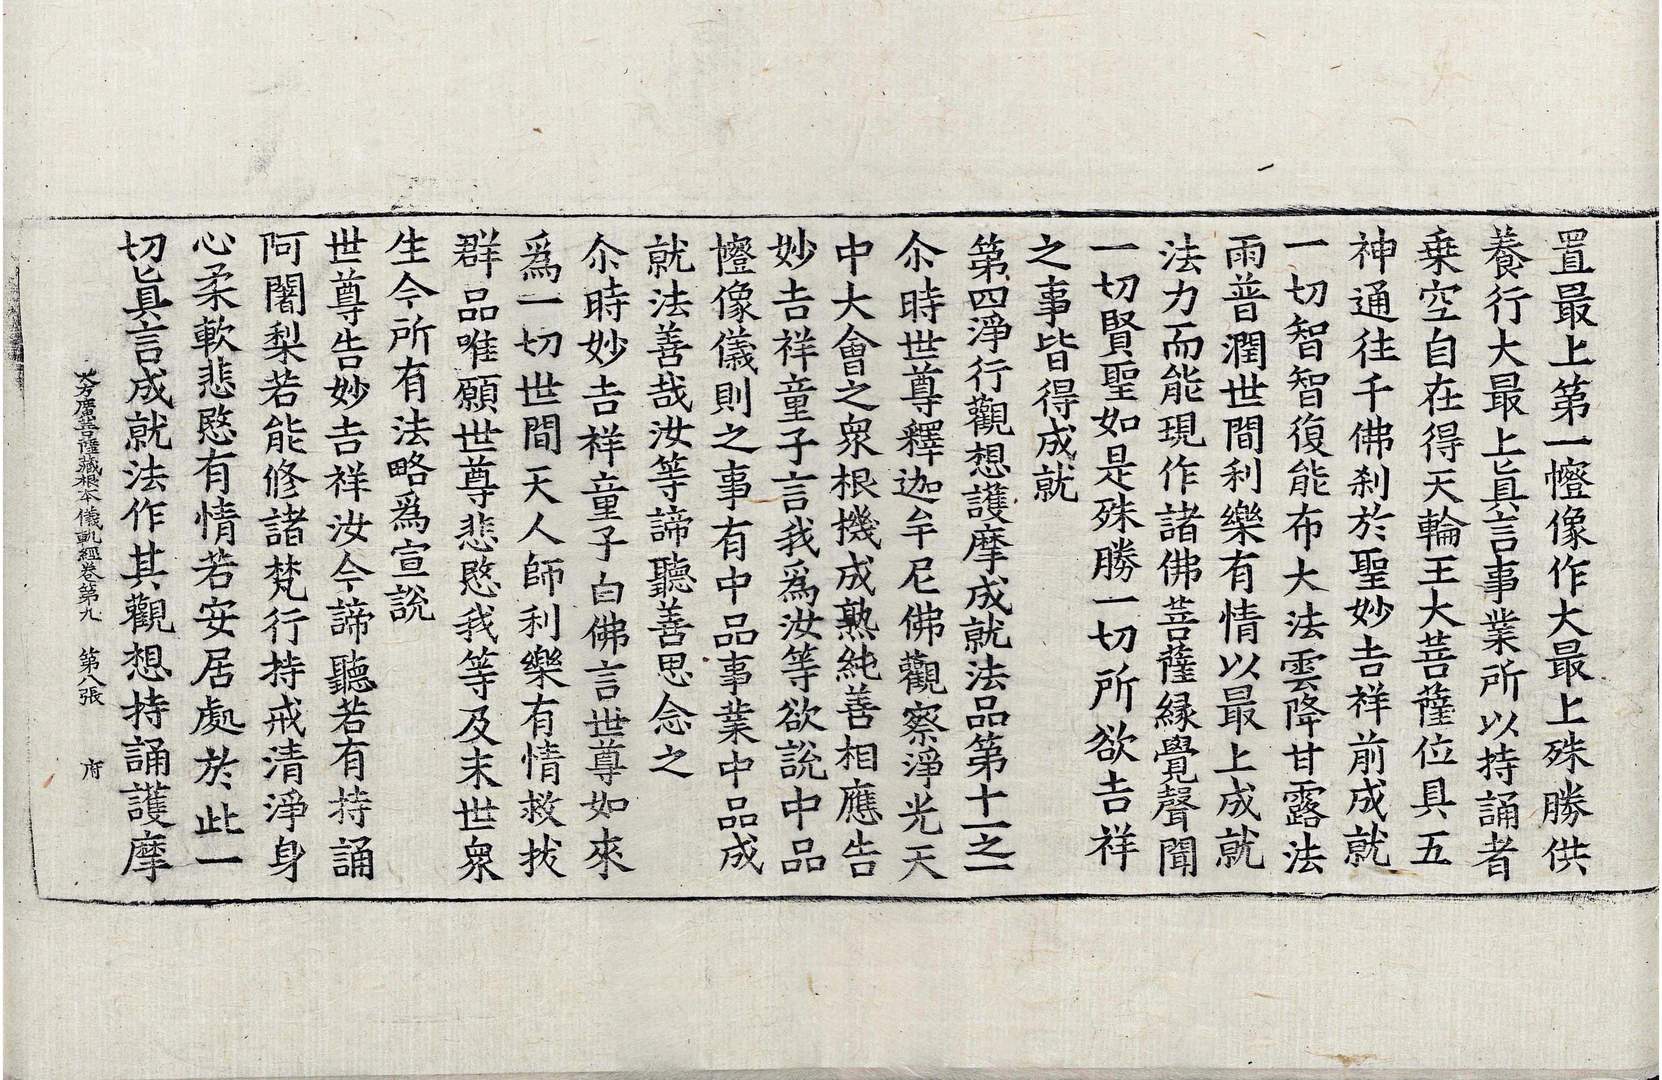 置最上第一㡧像作大最上殊勝供
養行大最上眞言事業所以持誦者
乗空自在得天輪王大菩薩位具五
神通往千佛刹於聖妙吉祥前成就
一切智智復能布大法雲降甘露法
雨普潤世間利樂有情以最上成就
法力而能現作諸佛菩薩縁覺聲聞
一切賢聖如是殊勝一切所欲吉祥
之事皆得成就
第四淨行觀想護摩成就法品第十一之一
尒時世尊釋迦牟尼佛觀察淨光天
中大會之衆根機成熟純善相應告
妙吉祥童子言我爲汝等欲說中品
㡧像儀則之事有中品事業中品成
就法善哉汝等諦聽善思念之
尒時妙吉祥童子白佛言世尊如來
爲一切世間天人師利樂有情救拔
群品唯願世尊悲愍我等及末世衆
生令所有法略爲宣說
世尊告妙吉祥汝今諦聽若有持誦
阿闍梨若能修諸梵行持戒清淨身
心柔軟悲愍有情若安居處於此一
切眞言成就法作其觀想持誦護摩
大方廣菩薩藏根本儀軌經卷第九 第八張 府